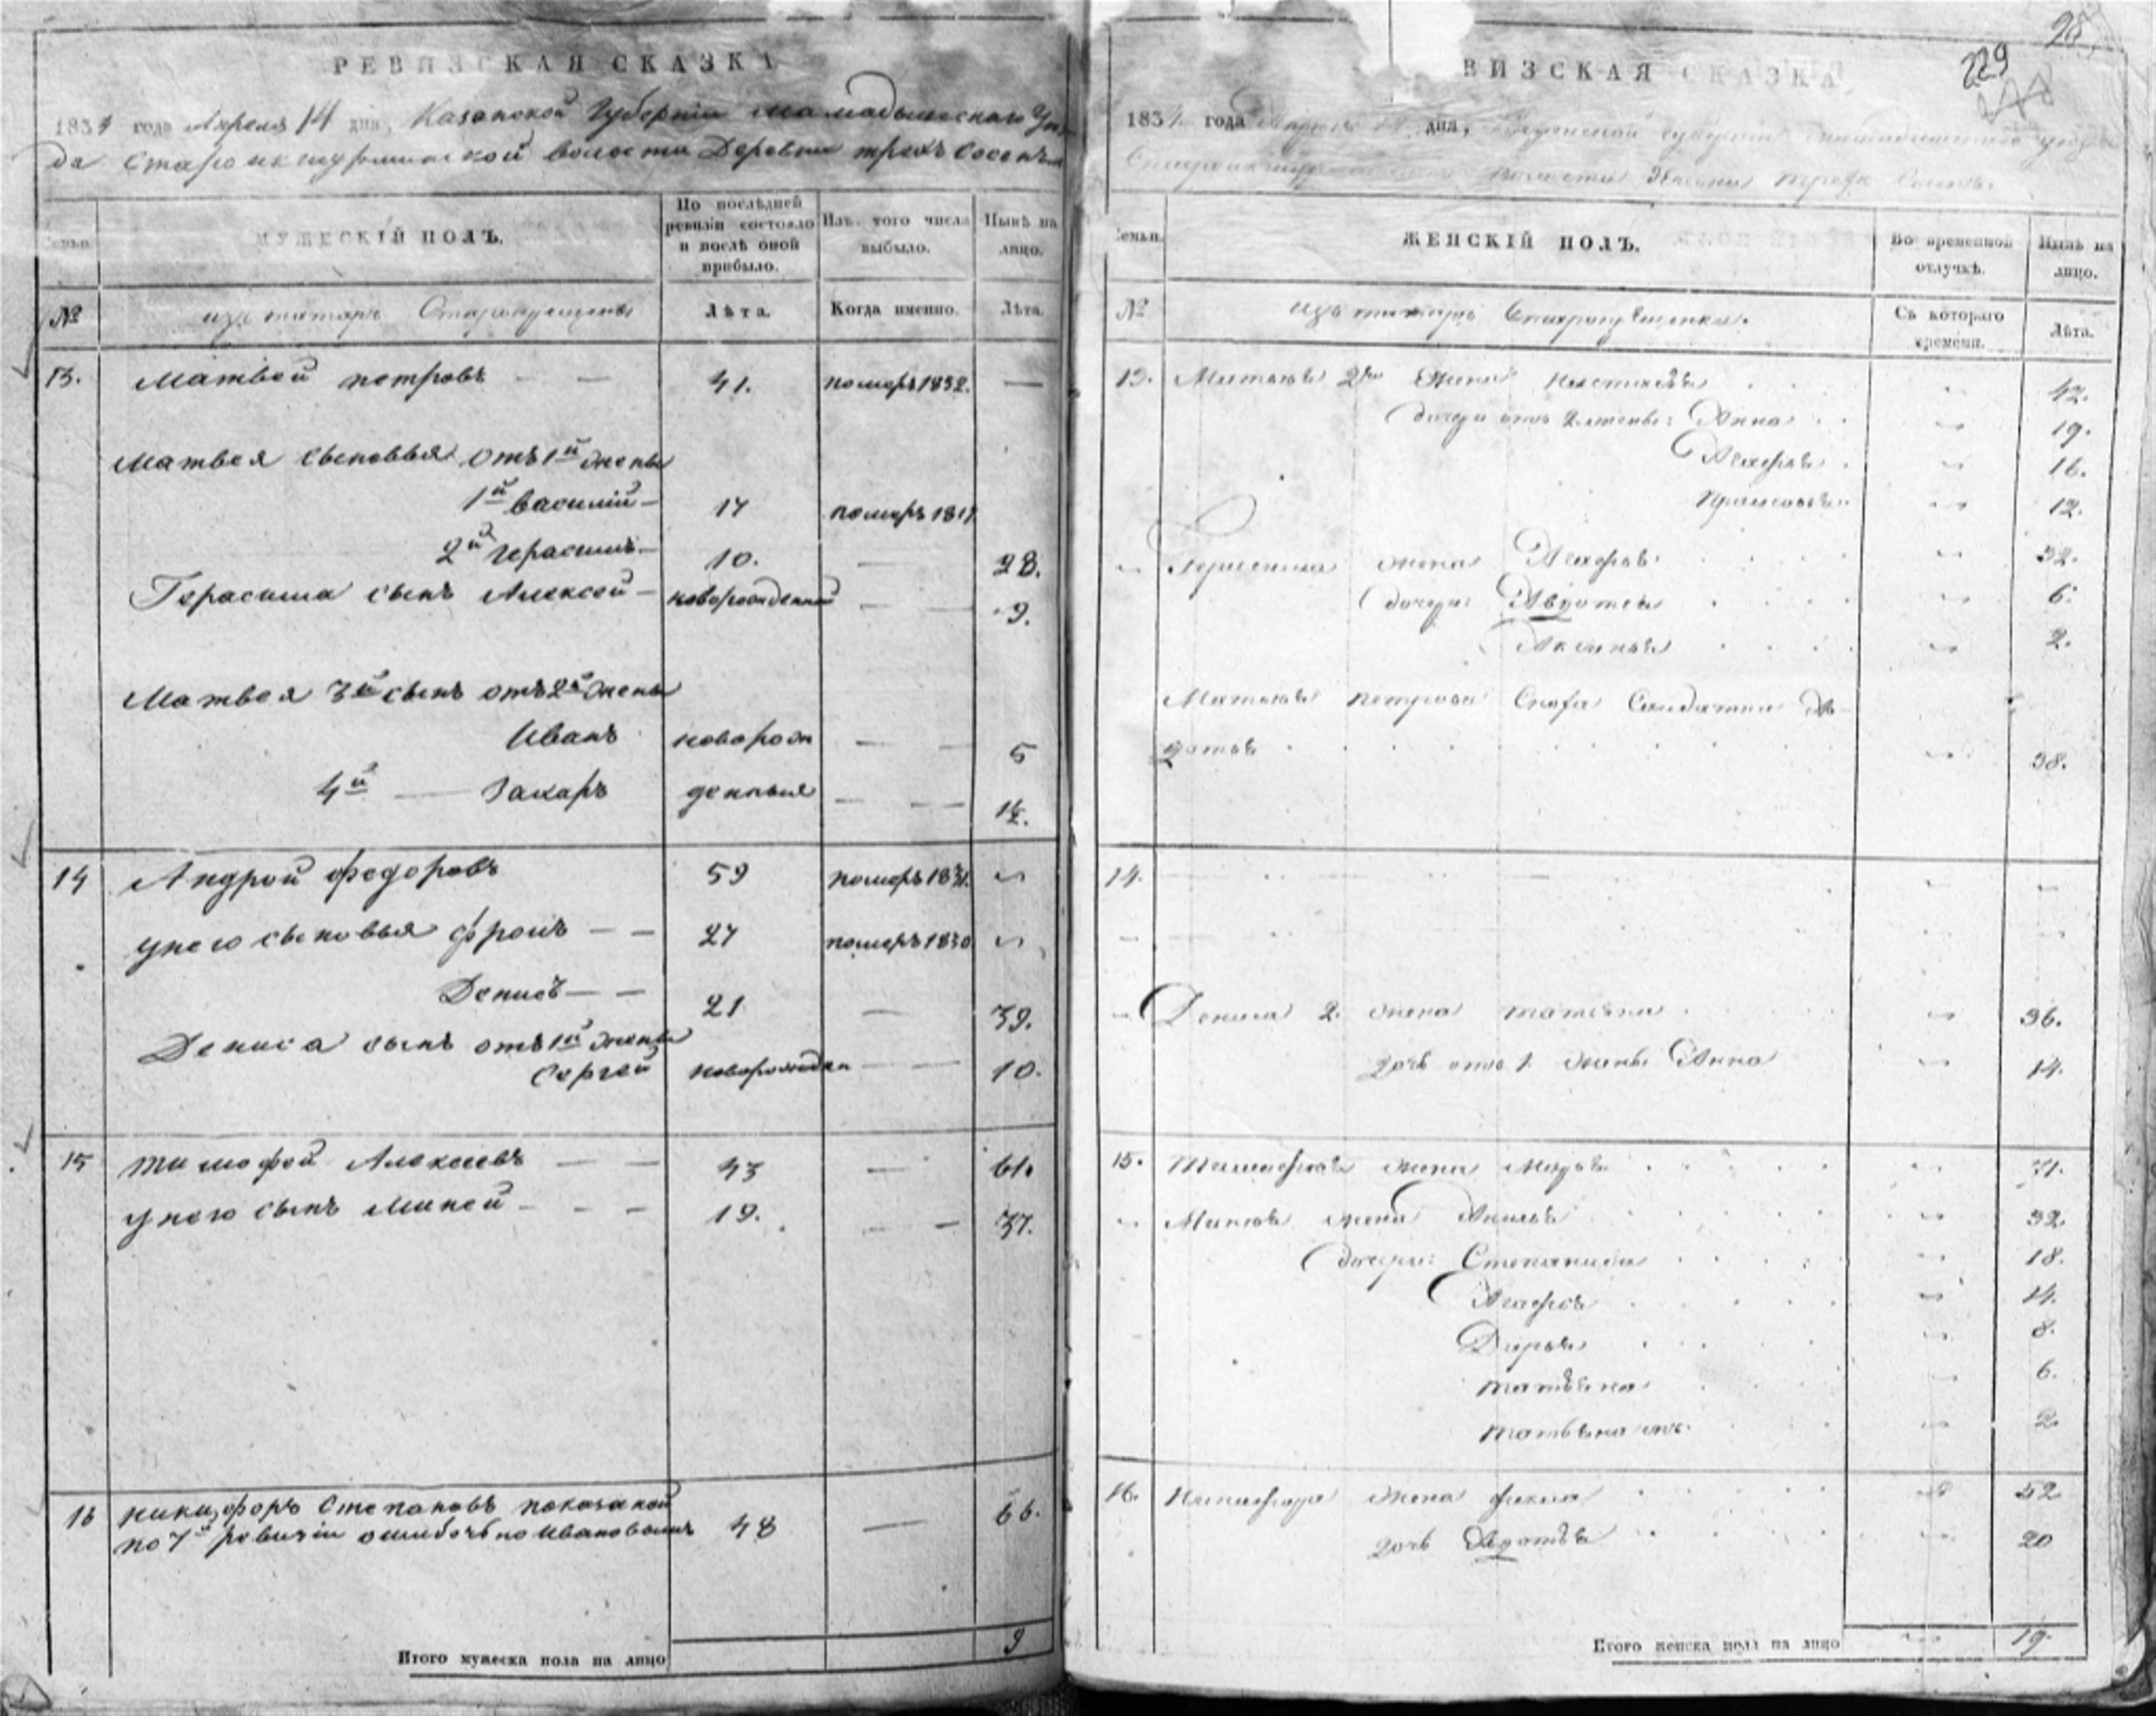 РЕВИЗСКАЯ СКАЗКА
1834 года Апреля 14 дня, Казанской Губернии Мамадышскаго Уез
да Староикшурминской волости Деревни трехъ Сосенъ
Семьи.
МУЖЕСКІЙ ПОЛЪ.
По послѣдней ревизіи состояло и послѣ оной прибыло.
Изъ того числа выбыло.
Нынѣ на лицо.
№
изъ татаръ Старокрещены
Лѣта.
Когда именно.
Лѣта.
13. Матвей петровъ — — 41. померъ 1832. —
Матвея сыновья отъ 1й жены
1й василій — 17 померъ 181
2й Герасимъ — 10. — 28.
Герасима сынъ Алексей — новорожденной — — 9.
Матвея 3й сынъ отъ 2й жены
Иванъ новорож — — 5
4й — Захаръ денныя — — — 1½.
14 Андрей федоровъ 59 померъ 1831. ~
у него сыновья фролъ — — 27 померъ 1830 ~
Денисъ — — 21 — 39.
Дениса сынъ отъ 1й жены
Сергей новорожден — — 10.
15 тимофей Алексеевъ — — 43 — 61.
у него сынъ Миней — — — 19. — — 37.
16 никифоръ Степановъ показаной
по 7й ревизіи ошибочно Ивановымъ 48 — 66.
Итого мужеска пола на лицо 9
25
229
ВИЗСКАЯ СКАЗКА,
1834 года Апреля 14 дня, Казанской губерніи Мамадышскаго уезда
Староикшурминской волости Деревни трехъ Сосенъ.
Семьи.
ЖЕНСКІЙ ПОЛЪ.
Во временной отлучкѣ.
Нынѣ на лицо.
№
изъ татаръ Старокрещеныхъ.
Съ котораго времени.
Лѣта.
13. Матвея 2я жена Настасья ~ 42.
дочери отъ 2 жены: Анна ~ 19.
Агафья ~ 16.
Прасковья ~ 12.
~ Герасима жена Агафья ~ 32.
дочери: Авдотья ~ 6.
Аксинья ~ 2.
Матвея петрова Сноха Салдатка Ав-
дотья ~ 38.
14. — ~ ~
Дениса 2. жена татьяна ~ 36.
дочь отъ 1. жены Анна ~ 14.
15. Тимофея жена Марья ~ 71.
~ Минея жена Акилина ~ 32
дочери: Степанида ~ 18.
Агафья ~ 14.
Дарья ~ 8.
татьяна ~ 6.
татьяна ~ 2
16. Никифора жена фекла ~ 52
дочь Авдотья ~ 20
Итого женска пола на лицо ~ 19.